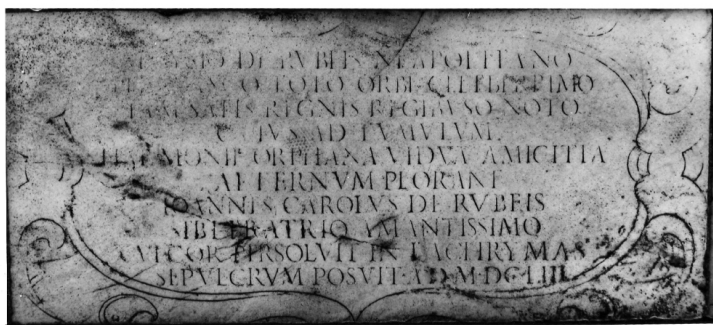 DE RVBEIS NEAPOLITANO
TOTO ORBE CELEBERRIMO
IAM SATIS REGNIS REGIBVSQ NOTO
CVIVS AD TVMVLVM
ORPHANA VIDVA AMICITIA
AETERNVM PLORANT
IOANNES CAROLVS DE RVBEIS
SIBI FRATRIQ AMANTISSIMO
CVI COR PERSOLVIT IN LACHRYMAS
SEPVLCRVM POSVIT A·D·M·DCLIII